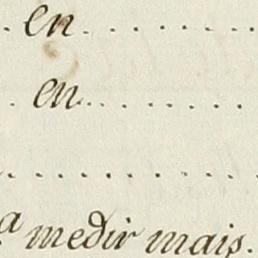 en
en
a medir mais.